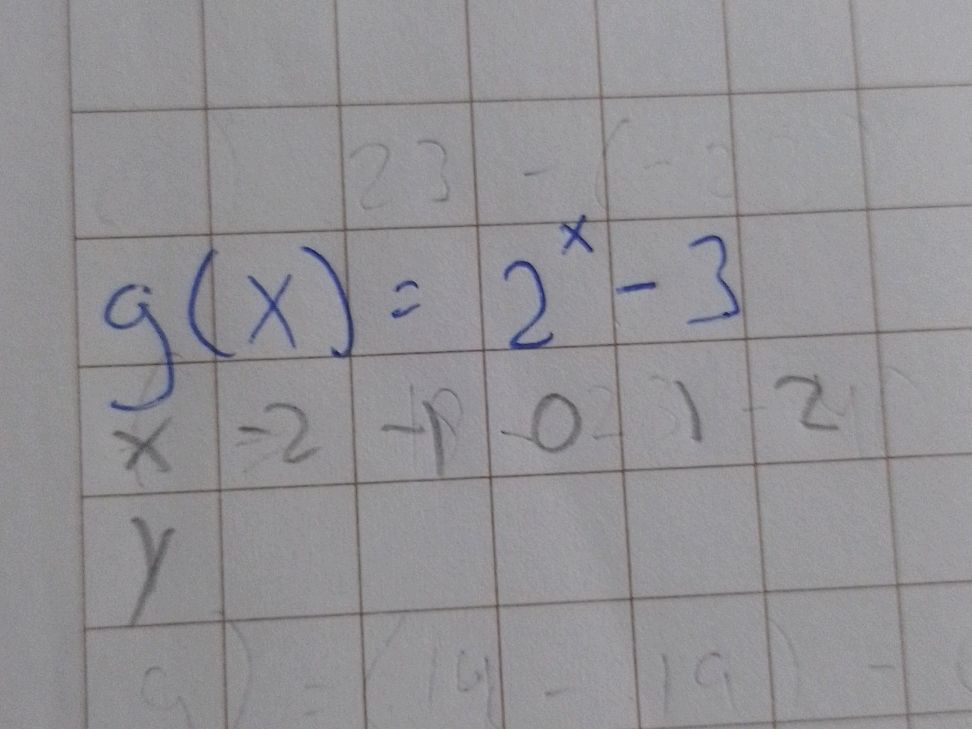 g(x) = 2^x - 3
x -2 -1 0 1 2
y